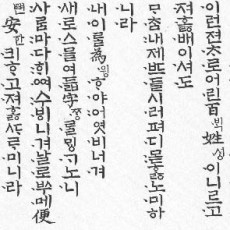 이런젼ᄎᆞ로어린百ᄇᆡᆨ姓셩이니르고
져호ᇙ배이셔도
ᄆᆞᄎᆞᆷ내제ᄠᅳ들시러펴디몯ᄒᆞᇙ노미하
니라
내이ᄅᆞᆯ爲윙ᄒᆞ야어엿비너겨
새로스믈여듧字ᄍᆞᆼᄅᆞᆯᄆᆡᇰᄀᆞ노니
사ᄅᆞᆷ마다ᄒᆡᅇᅧ수ᄫᅵ니겨날로ᄡᅮ메便
뼌安ᅙᅡᆫ킈ᄒᆞ고져ᄒᆞᇙᄯᆞᄅᆞ미니라